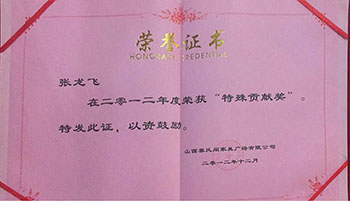 荣誉证书
HONORARY CREDENTIAL
张龙飞
在二零一二年度荣获“特殊贡献奖”。
特发此证，以资鼓励。
山西黎氏阁家具广场有限公司
二零一二年十二月